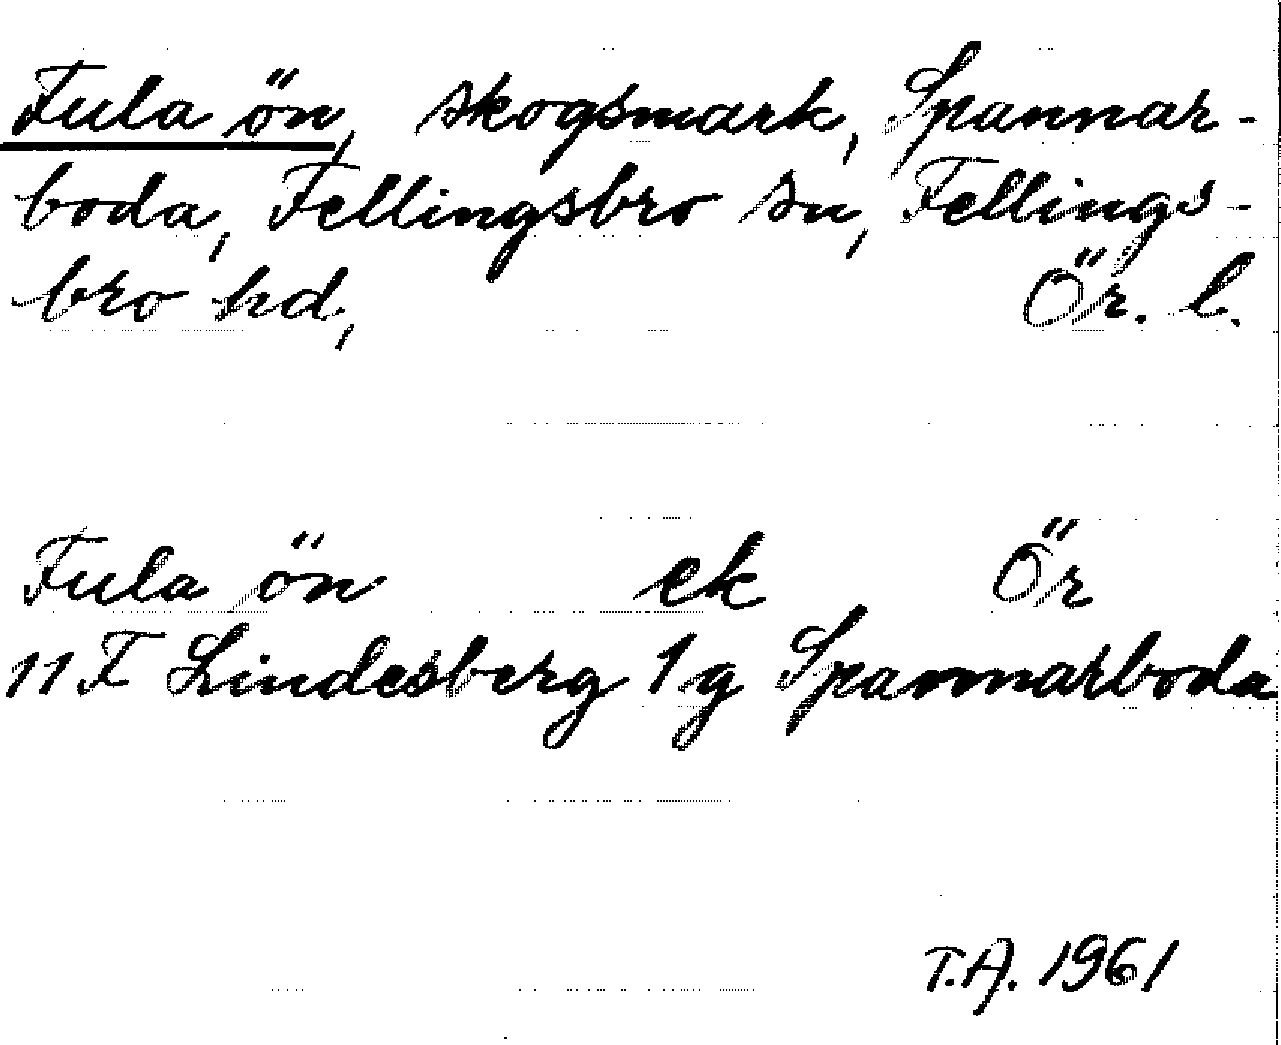 Fula ön, skogsmark, Spannar-
boda, Fellingsbro sn, Fellings-
bro hd, Ör. l.
Fula ön ek Ör
11 F Lindesberg 1 g Spannarboda
T.A. 1961